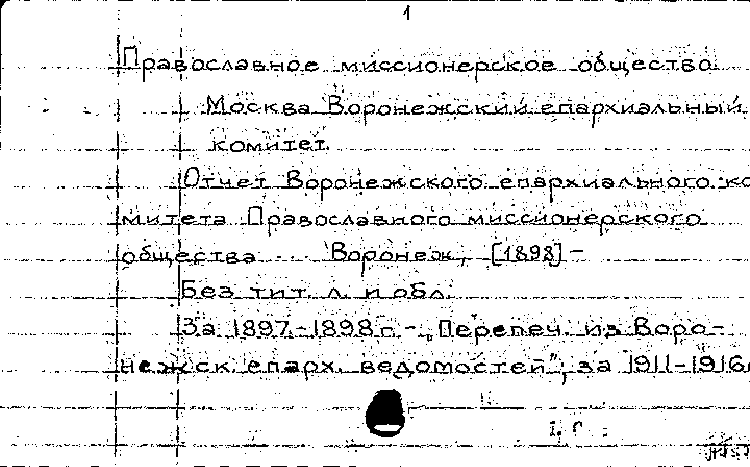 1
Православное миссионерское общество
Москва Воронежский епархиальный
комитет.
Отчет Воронежского епархиального ко
митета Православного миссионерского
общества Воронеж, [1898] –
Без тит. л. и обл.
За 1897–1898 г. – „Перепеч. из Воро–
нежск. епарх. ведомостей"; за 1911–1916